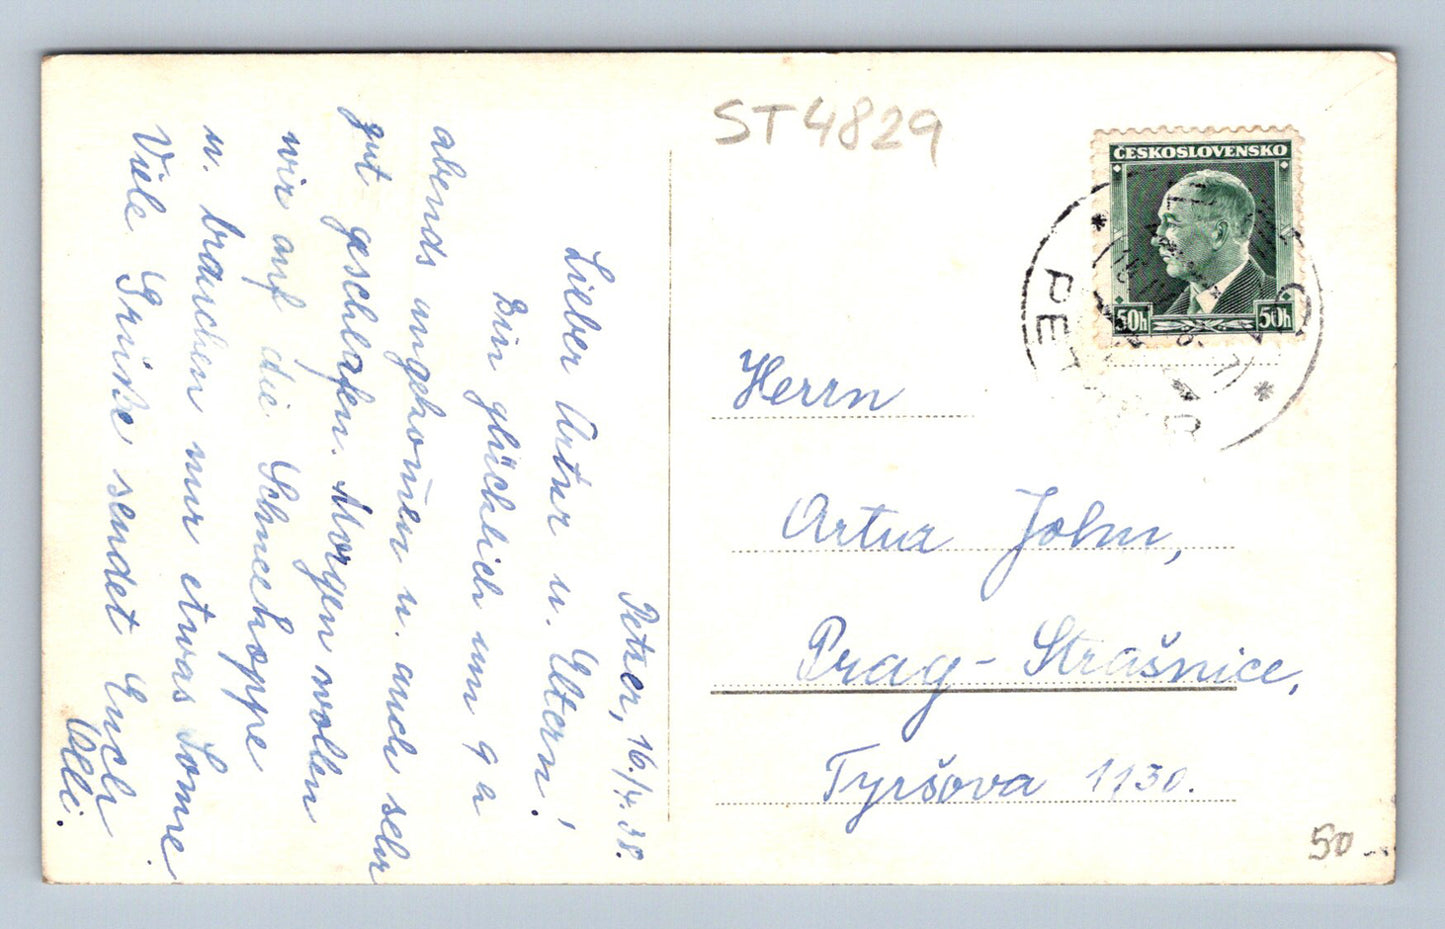 ST 4829
ČESKOSLOVENSKO
50h 50h
PE
Petzer, 16./4. 38.
Lieber Artur u. Eltern!
Bin glücklich um 9 h
abends angekom̄en u. auch sehr
gut geschlafen. Morgen wollen
wir auf die Schneekoppe
u. brauchen nur etwas Sonne.
Viele Grüße sendet Euch
Olli.
Herrn
Artur John,
Prag - Strašnice,
Tyršova 1130.
50